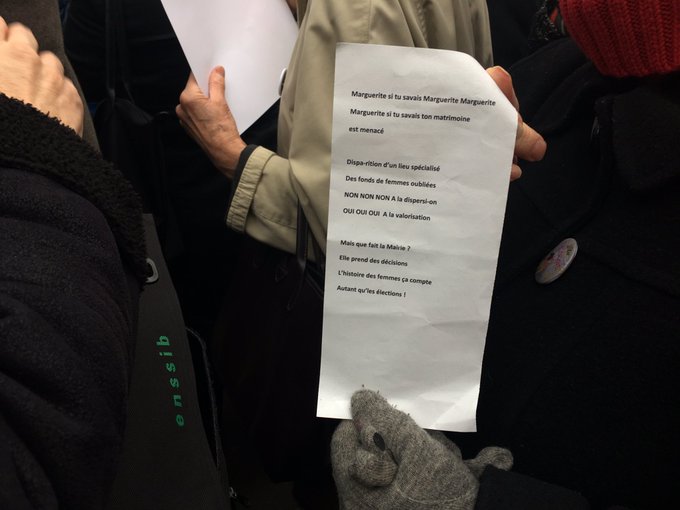 Marguerite si tu savais Marguerite Marguerite
Marguerite si tu savais ton matrimoine
est menacé
Dispa-rition d'un lieu spécialisé
Des fonds de femmes oubliées
NON NON NON A la dispersi-on
OUI OUI OUI A la valorisation
Mais que fait la Mairie ?
Elle prend des décisions
L'histoire des femmes ça compte
Autant qu'les élections !
enssib